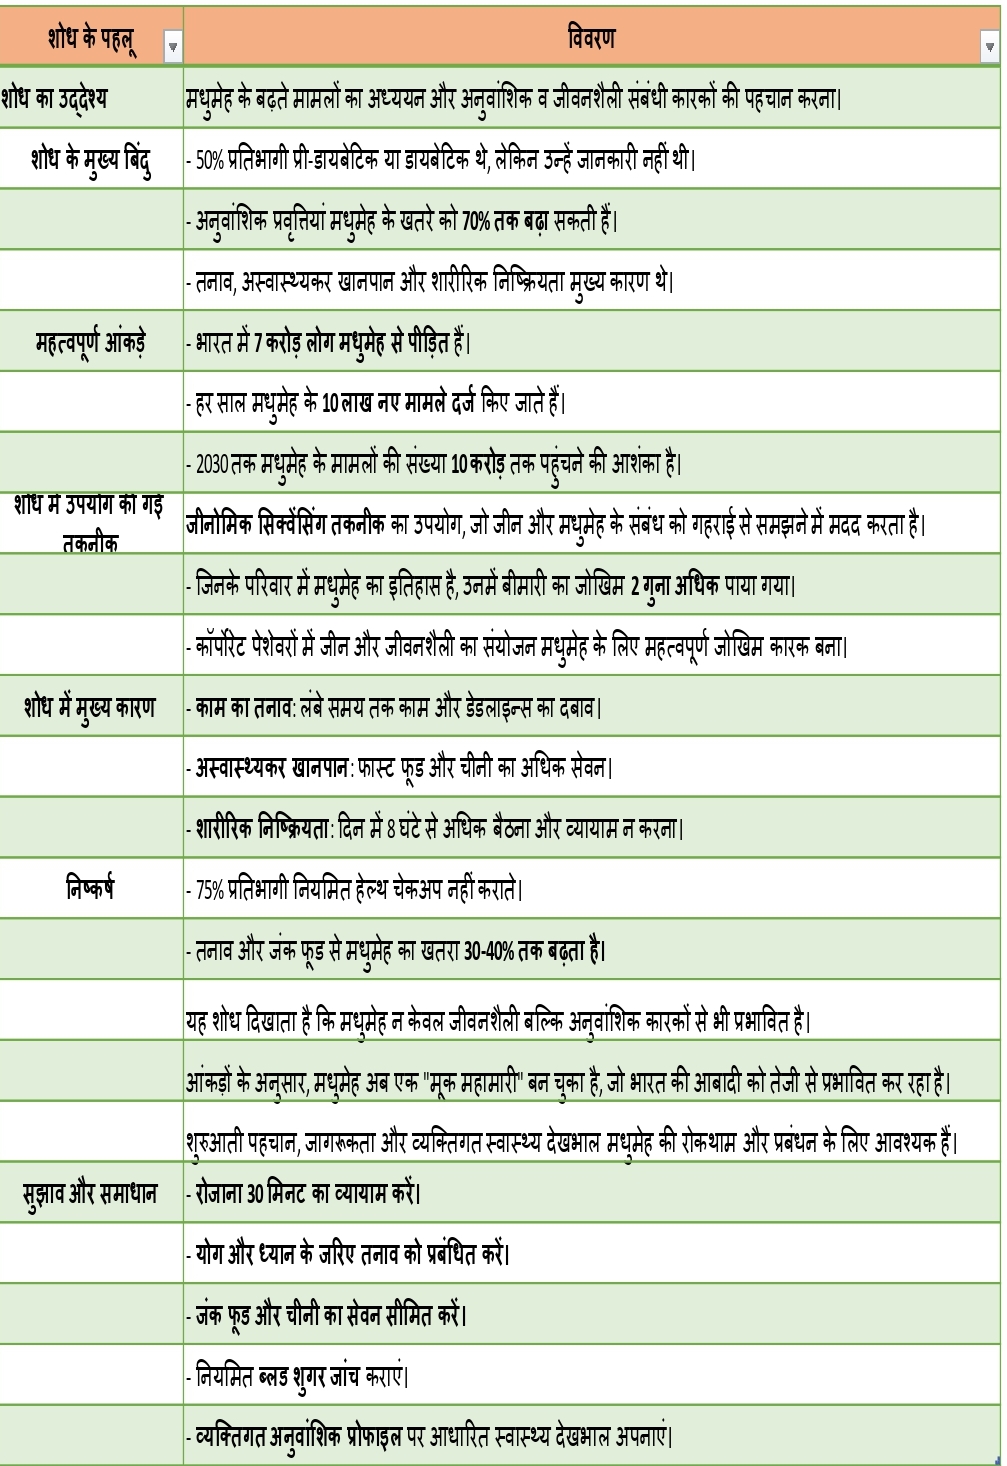 शोध के पहलू विवरण
शोध का उद्देश्य मधुमेह के बढ़ते मामलों का अध्ययन और अनुवांशिक व जीवनशैली संबंधी कारकों की पहचान करना।
शोध के मुख्य बिंदु - 50% प्रतिभागी प्री-डायबेटिक या डायबेटिक थे, लेकिन उन्हें जानकारी नहीं थी।
- अनुवांशिक प्रवृत्तियां मधुमेह के खतरे को 70% तक बढ़ा सकती हैं।
- तनाव, अस्वास्थ्यकर खानपान और शारीरिक निष्क्रियता मुख्य कारण थे।
महत्वपूर्ण आंकड़े - भारत में 7 करोड़ लोग मधुमेह से पीड़ित हैं।
- हर साल मधुमेह के 10 लाख नए मामले दर्ज किए जाते हैं।
- 2030 तक मधुमेह के मामलों की संख्या 10 करोड़ तक पहुंचने की आशंका है।
शोध में उपयोग की गई
तकनीक
जीनोमिक सिक्वेंसिंग तकनीक का उपयोग, जो जीन और मधुमेह के संबंध को गहराई से समझने में मदद करता है।
- जिनके परिवार में मधुमेह का इतिहास है, उनमें बीमारी का जोखिम 2 गुना अधिक पाया गया।
- कॉर्पोरेट पेशेवरों में जीन और जीवनशैली का संयोजन मधुमेह के लिए महत्वपूर्ण जोखिम कारक बना।
शोध में मुख्य कारण - काम का तनाव: लंबे समय तक काम और डेडलाइन्स का दबाव।
- अस्वास्थ्यकर खानपान: फास्ट फूड और चीनी का अधिक सेवन।
- शारीरिक निष्क्रियता: दिन में 8 घंटे से अधिक बैठना और व्यायाम न करना।
निष्कर्ष - 75% प्रतिभागी नियमित हेल्थ चेकअप नहीं कराते।
- तनाव और जंक फूड से मधुमेह का खतरा 30-40% तक बढ़ता है।
यह शोध दिखाता है कि मधुमेह न केवल जीवनशैली बल्कि अनुवांशिक कारकों से भी प्रभावित है।
आंकड़ों के अनुसार, मधुमेह अब एक "मूक महामारी" बन चुका है, जो भारत की आबादी को तेजी से प्रभावित कर रहा है।
शुरुआती पहचान, जागरूकता और व्यक्तिगत स्वास्थ्य देखभाल मधुमेह की रोकथाम और प्रबंधन के लिए आवश्यक हैं।
सुझाव और समाधान - रोजाना 30 मिनट का व्यायाम करें।
- योग और ध्यान के जरिए तनाव को प्रबंधित करें।
- जंक फूड और चीनी का सेवन सीमित करें।
- नियमित ब्लड शुगर जांच कराएं।
- व्यक्तिगत अनुवांशिक प्रोफाइल पर आधारित स्वास्थ्य देखभाल अपनाएं।